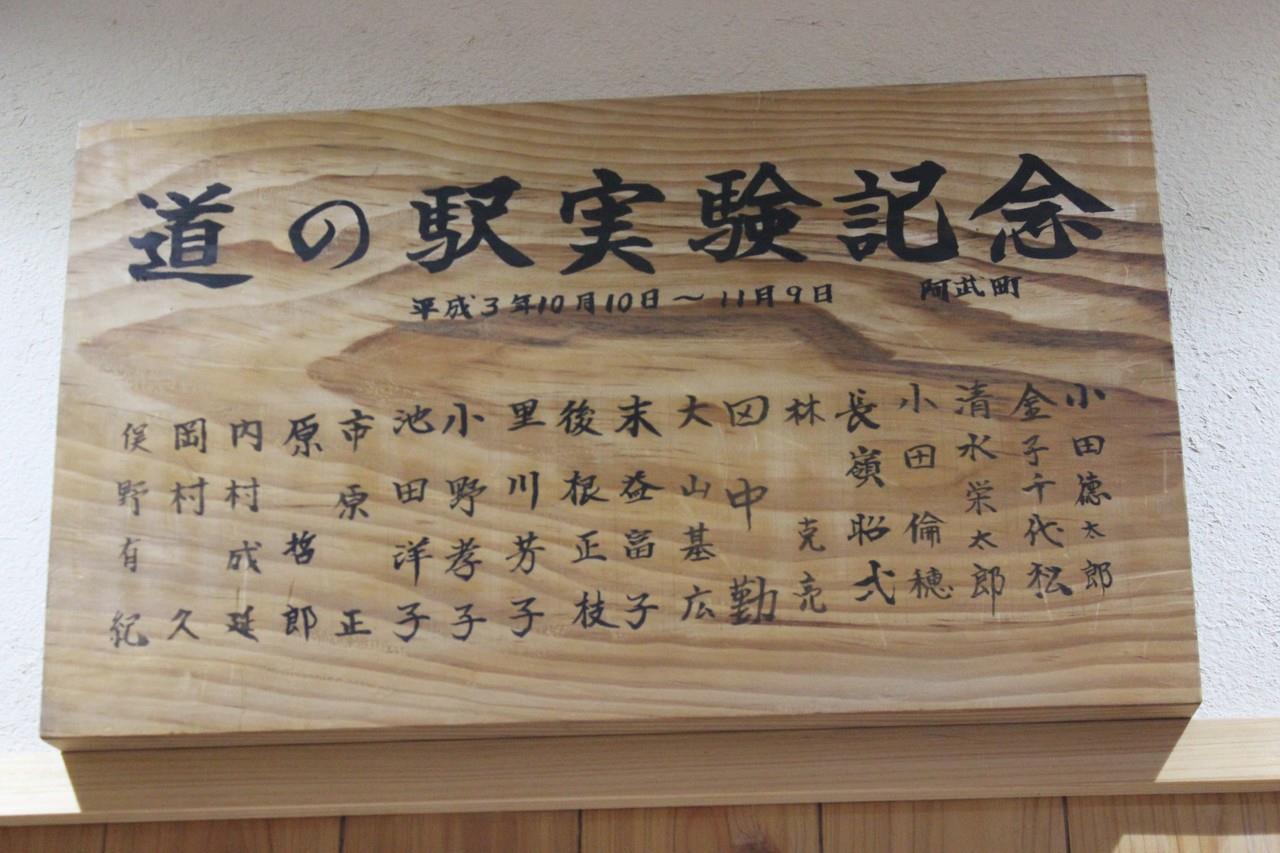 道の駅実験記念
平成3年10月10日〜11月9日 阿武町
小田徳太郎
金子千代松
清水栄太郎
小田倫穂
長嶺昭弐
林克亮
田中勤
大山基広
末益富子
後根正枝
里川芳子
小野孝子
池田洋子
市原正
原哲郎
内村成延
岡村久
俣野有紀